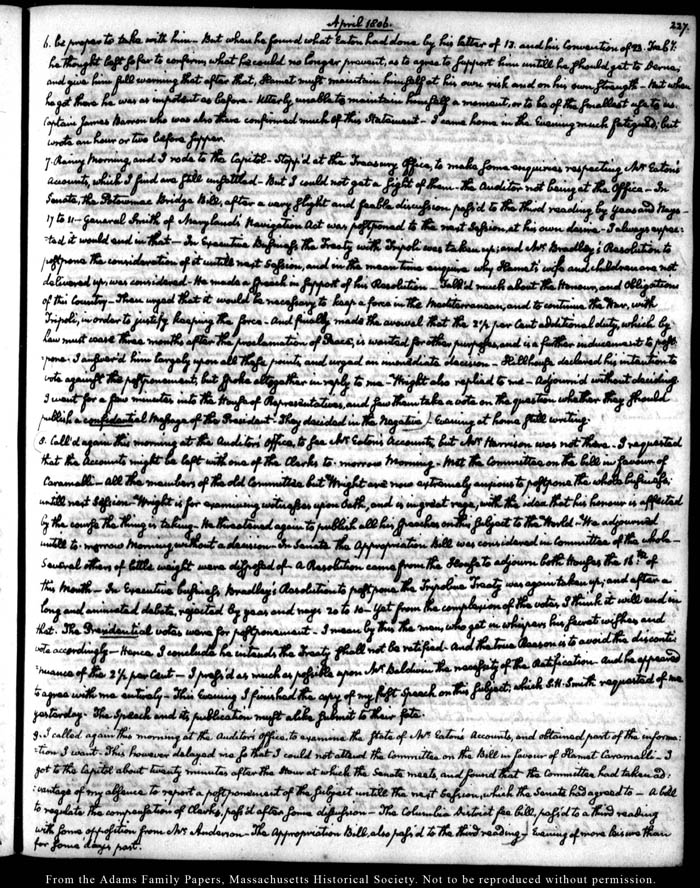 April 1806.
227.
6. he propos'd to take with him. But when he found what Eaton had done by his letter of 13. and his Convention of 23. Feaby.
he thought best so far to confirm, what he could no longer prevent, as to agree to support him untill he should get to Derne,
and give him full warning that after that, Hamet must maintain himself at his own risk and on his own strength — But when
he got there he was as impotent as before. Utterly unable to maintain himself a moment, or to be of the smallest use to us.
Captain James Barron who was also there confirmed much of this Statement — I came home in the Evening much fatigued; but
wrote an hour or two before supper.
7. Rainy Morning, and I rode to the Capitol — Stopp'd at the Treasury Office, to make some enquiries respecting Mr. Eaton's
Accounts, which I find are still unsettled — But I could not get a sight of them — the Auditor not being at the Office — In
Senate, the Potowmac Bridge Bill, after a very slight and feeble discussion pass'd to the third reading by yeas and Nays
17 to 11 — General Smith of Maryland's Navigation Act was postponed to the next Session, at his own desire — I always expec-
-ted it would end in that — In Executive Business the Treaty with Tripoli was taken up; and Mr. Bradley's Resolution to
postpone the consideration of it untill next Session, and in the mean time enquire why Hamet's wife and children are not
delivered up, was considered — He made a speech in support of his Resolution — Talk'd much about the Honour, and Obligations
of this Country — Then urged that it would be necessary to keep a force in the Mediterranean, and to continue the War, with
Tripoli, in order to justify keeping the force — And finally made the avowal that the 2½ per Cent additional duty, which by
Law must cease three months after the proclamation of Peace, is wanted for other purposes, and is a further inducement to post-
-pone. I answer'd him largely upon all these points, and urged an immediate decision — Hillhouse declared his intention to
vote against the postponement, but spoke altogether in reply to me — Wright also replied to me — Adjourn'd without deciding.
I went for a few minutes into the House of Representatives, and saw them take a vote on the question whether they should
publish a confidential Message of the President — They decided in the Negative) — Evening at home still writing.
8. Call'd again this morning at the Auditor's Office, to see Mr. Eaton's Accounts, but Mr. Harrison was not there. I requested
that the Accounts might be left with one of the Clerks to-morrow Morning — Met the Committee on the bill in favour of
Caramalli — All the members of the old Committee but Wright are now extremely anxious to postpone the whole business
untill next Session — Wright is for examining witnesses upon Oath, and is in great rage, with the idea that his honour is affected
by the course the thing is taking — He threatened again to publish all his speeches on this subject to the World — We adjourned
untill to-morrow Morning without a decision — In Senate the Appropriation Bill was considered in Committee of the whole —
Several others of little weight were disposed of — A Resolution came from the House to adjourn both Houses the 16th. of
this Month — In Executive business Bradley's Resolution to postpone the Tripoline Treaty was again taken up; and after a
long and animated debate, rejected by yeas and nays 20 to 10 — Yet from the complexion of the votes I think it will end in
that. The Presidential votes were for postponement — I mean by this the men, who get in whispers his secret wishes and
vote accordingly — Hence I conclude he intends the Treaty shall not be ratified — And the true Reason is to avoid the disconti-
-nuance of the 2½ per Cent — I press'd as much as possible upon Mr. Baldwin the necessity of the Ratification — And he appeared
to agree with me entirely — This Evening I finished the copy of my last Speech on this subject, which S. H. Smith requested of me
yesterday. The speech and its publication must alike submit to their fate.
9. I called again this morning at the Auditor's Office, to examine the State of Mr. Eaton's Accounts, and obtained part of the informa-
-tion I want. This however delayed me so that I could not attend the Committee on the Bill in favour of Hamet Caramalli — I
got to the Capitol about twenty minutes after the Hour at which the Senate meets, and found that the Committee had taken ad-
-vantage of my absence to report a postponement of the subject untill the next Session, which the Senate had agreed to — A bill
to regulate the compensation of Clerks, pass'd after some discussion — The Columbia District fee bill, pass'd to a third reading
with some opposition from Mr. Anderson — The Appropriation Bill, also pass'd to the third reading) — Evening of more leisure than
for some days past.
From the Adams Family Papers, Massachusetts Historical Society. Not to be reproduced without permission.